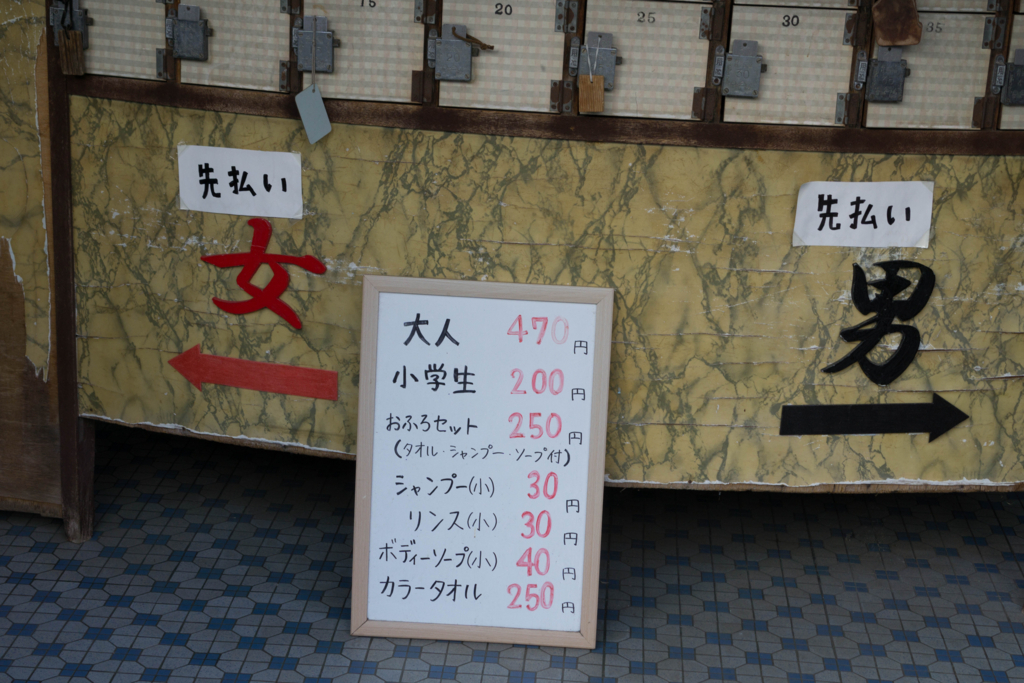 15
20
25
30
35
先払い
女
先払い
男
大人 470円
小学生 200円
おふろセット 250円
(タオル・シャンプー・ソープ付)
シャンプー(小) 30円
リンス(小) 30円
ボディーソープ(小) 40円
カラータオル 250円